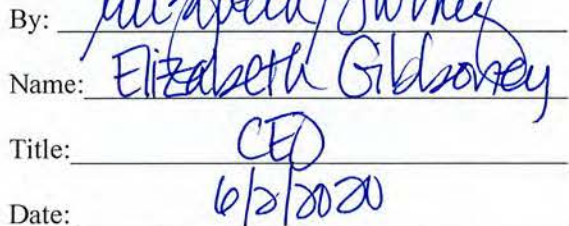 By:
Name: Elizabeth Gibboney
Title: CEO
Date: 6/2/2020